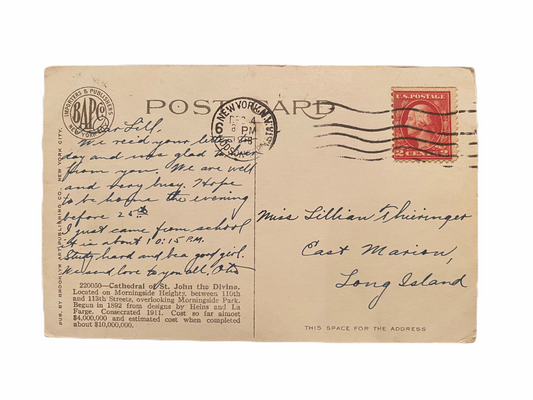 POST CARD
IMPORTERS & PUBLISHERS
BAP Co.
NEW YORK
NEW YORK, N.Y.
DEC 4
PM
1918
HUDSON
U.S. POSTAGE
2 CENTS 2
Dear Lill,
We rec'd your letter to
day and was glad to hear
from you. We are well
and very busy. Hope
to be home the evening
before 25th
I just came from school
It is about 10:15 P.M.
Study hard and be a good girl.
We send love to you all, Otis
220050—Cathedral of St. John the Divine.
Located on Morningside Heights, between 110th
and 113th Streets, overlooking Morningside Park.
Begun in 1892 from designs by Heins and La
Farge. Consecrated 1911. Cost so far almost
$4,000,000 and estimated cost when completed
about $10,000,000.
PUB. BY BROOKLYN ART PUBLISHING CO., NEW YORK CITY.
Miss Lillian Thuringer
East Marion,
Long Island
THIS SPACE FOR THE ADDRESS